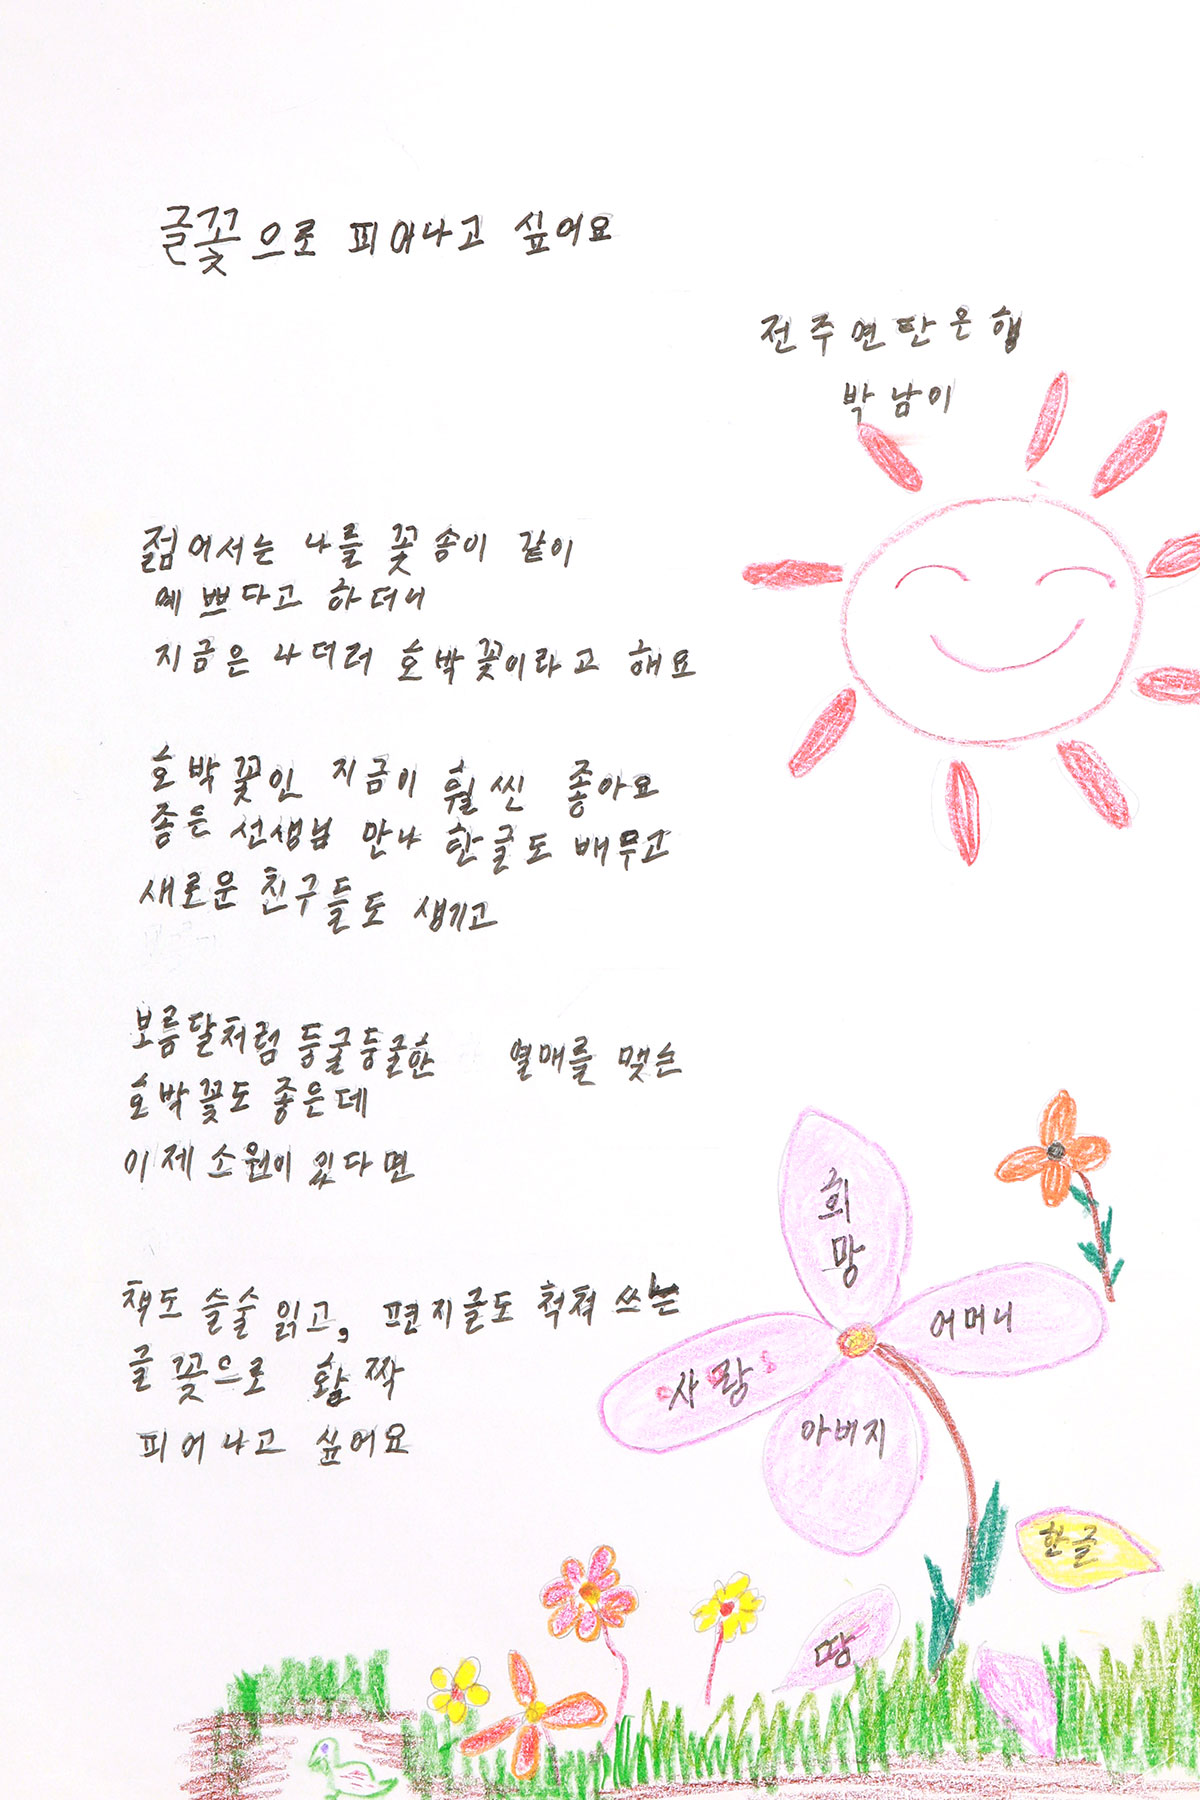 글꽃으로 피어나고 싶어요
전주연탄은행
박남이
젊어서는 나를 꽃송이 같이
예쁘다고 하더니
지금은 나더러 호박꽃이라고 해요
호박꽃인 지금이 훨씬 좋아요
좋은 선생님 만나 한글도 배우고
새로운 친구들도 생기고
보름달처럼 둥굴둥글한 열매를 맺는
호박꽃도 좋은데
이제 소원이 있다면
책도 술술 읽고, 편지글도 척척 쓰는
글꽃으로 활짝
피어나고 싶어요
희망
어머니
사랑
아버지
한글
땅